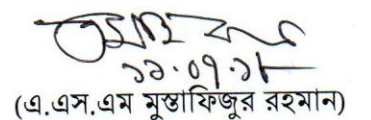 ১১.০৭.১৮
(এ.এস.এম মুস্তাফিজুর রহমান)